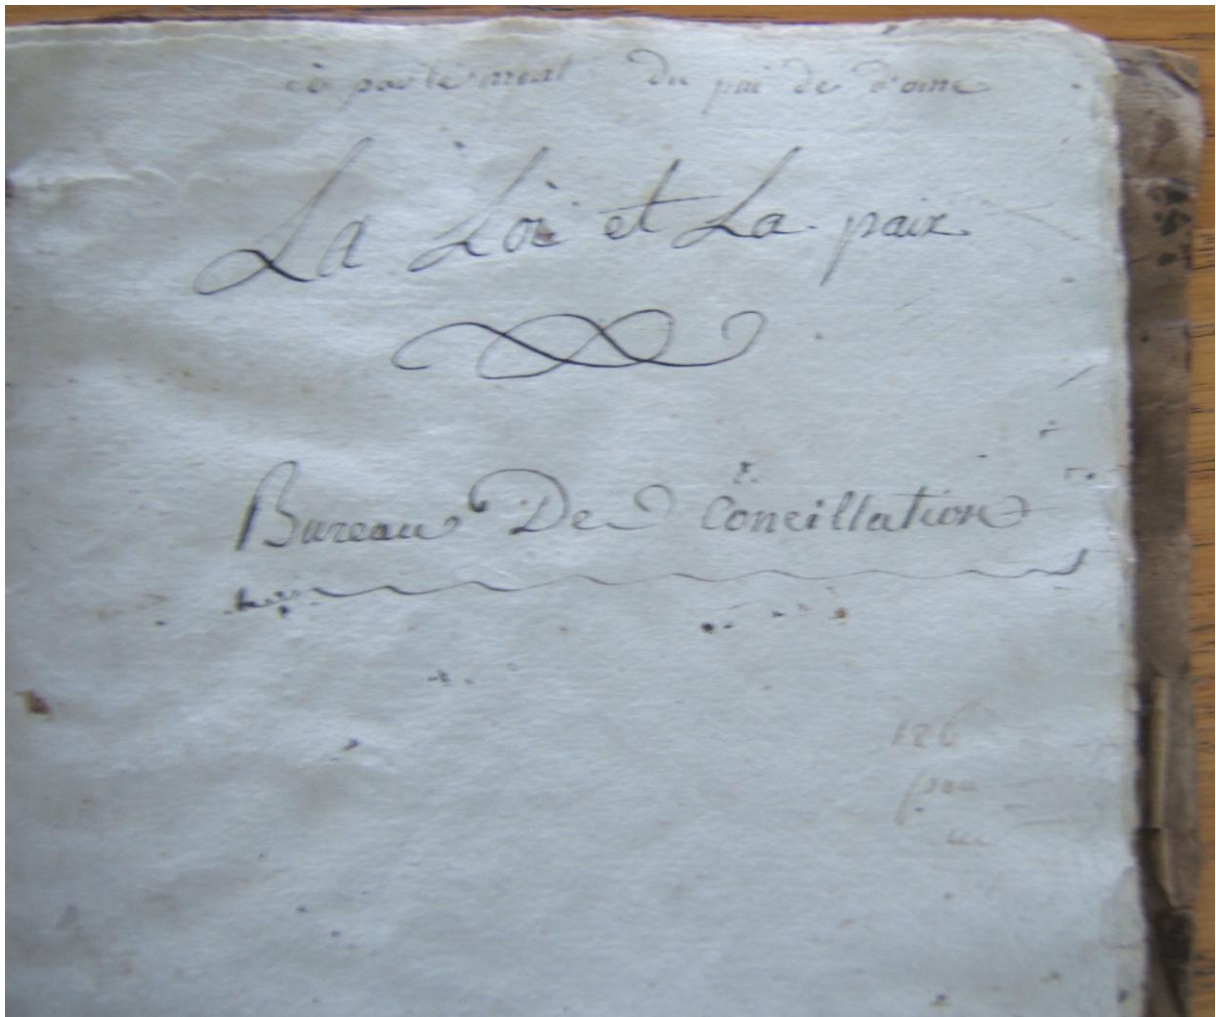 du de
La Loi et La paix
Bureau De Concillation
126